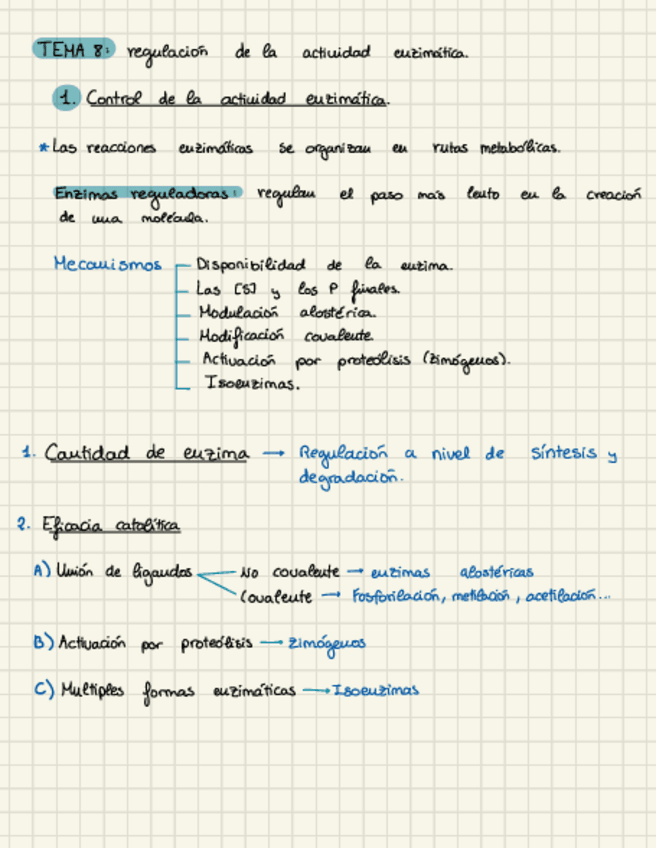 TEMA 8: regulación de la actividad enzimática.
1. Control de la actividad enzimática.
* Las reacciones enzimáticas se organizan en rutas metabólicas.
Enzimas reguladoras: regulan el paso más lento en la creación
de una molécula.
Mecanismos
Disponibilidad de la enzima.
Las [S] y los P finales.
Modulación alostérica.
Modificación covalente.
Activación por proteólisis (zimógenos).
Isoenzimas.
1. Cantidad de enzima → Regulación a nivel de síntesis y
degradación.
2. Eficacia catalítica
A) Unión de ligandos
No covalente → enzimas alostéricas
Covalente → Fosforilación, metilación, acetilación...
B) Activación por proteólisis → zimógenos
C) Multiples formas enzimáticas → Isoenzimas